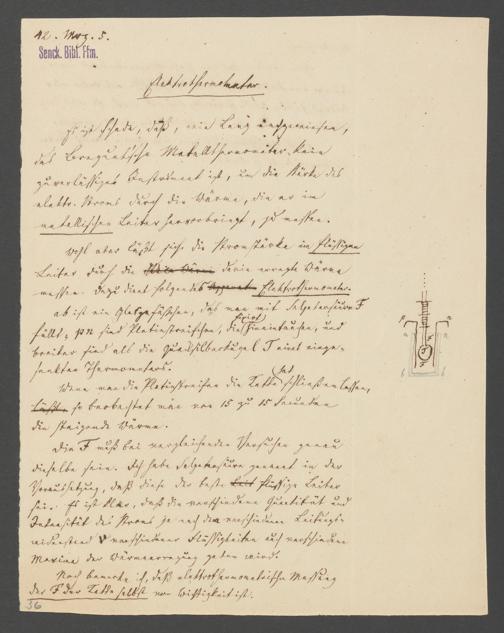 42. Mrz. 5.
Senck. Bibl. Ffm.
Elektrothermometer.
Es ist Schade, daß, wie Lenz nachgewiesen,
das Breguet'sche Metallthermometer kein
zuverlässiges Instrument ist, um die Stärke des
elektr. Stroms durch die Wärme, die er im
metallischen Leiter hervorbringt, zu messen.
Wohl aber läßt sich die Stromstärke im flüssigen
Leiter durch die darin erregte Wärme
messen. Dazu dient folgendes Elektrothermometer.
ab ist ein Glasgefäßchen, das man mit Salpetersäure F
füllt; pn sind Platinstreifchen, die eintauchen, und
breiter sind als die Quecksilberkugel T eines einge-
senkten Thermometers.
Wenn nun die Platinstreifen die Kette schließen lassen,
so beobachtet man von 15 zu 15 Secunden
die steigende Wärme.
Die F muß bei vergleichenden Versuchen genau
dieselbe sein. Ich habe Salpetersäure genannt in der
Voraussetzung, daß diese der beste flüssige Leiter
sei. Es ist klar, daß die verschiedene Quantität und
Intensität des Stroms je nach dem verschiedenen Leitungs-
widerstand verschiedener Flüssigkeiten auch verschiedene
Maxima der Wärmeerregung geben wird.
Noch bemerke ich, daß elektrothermometrische Messung
der F der Kette selbst von Wichtigkeit ist.
36